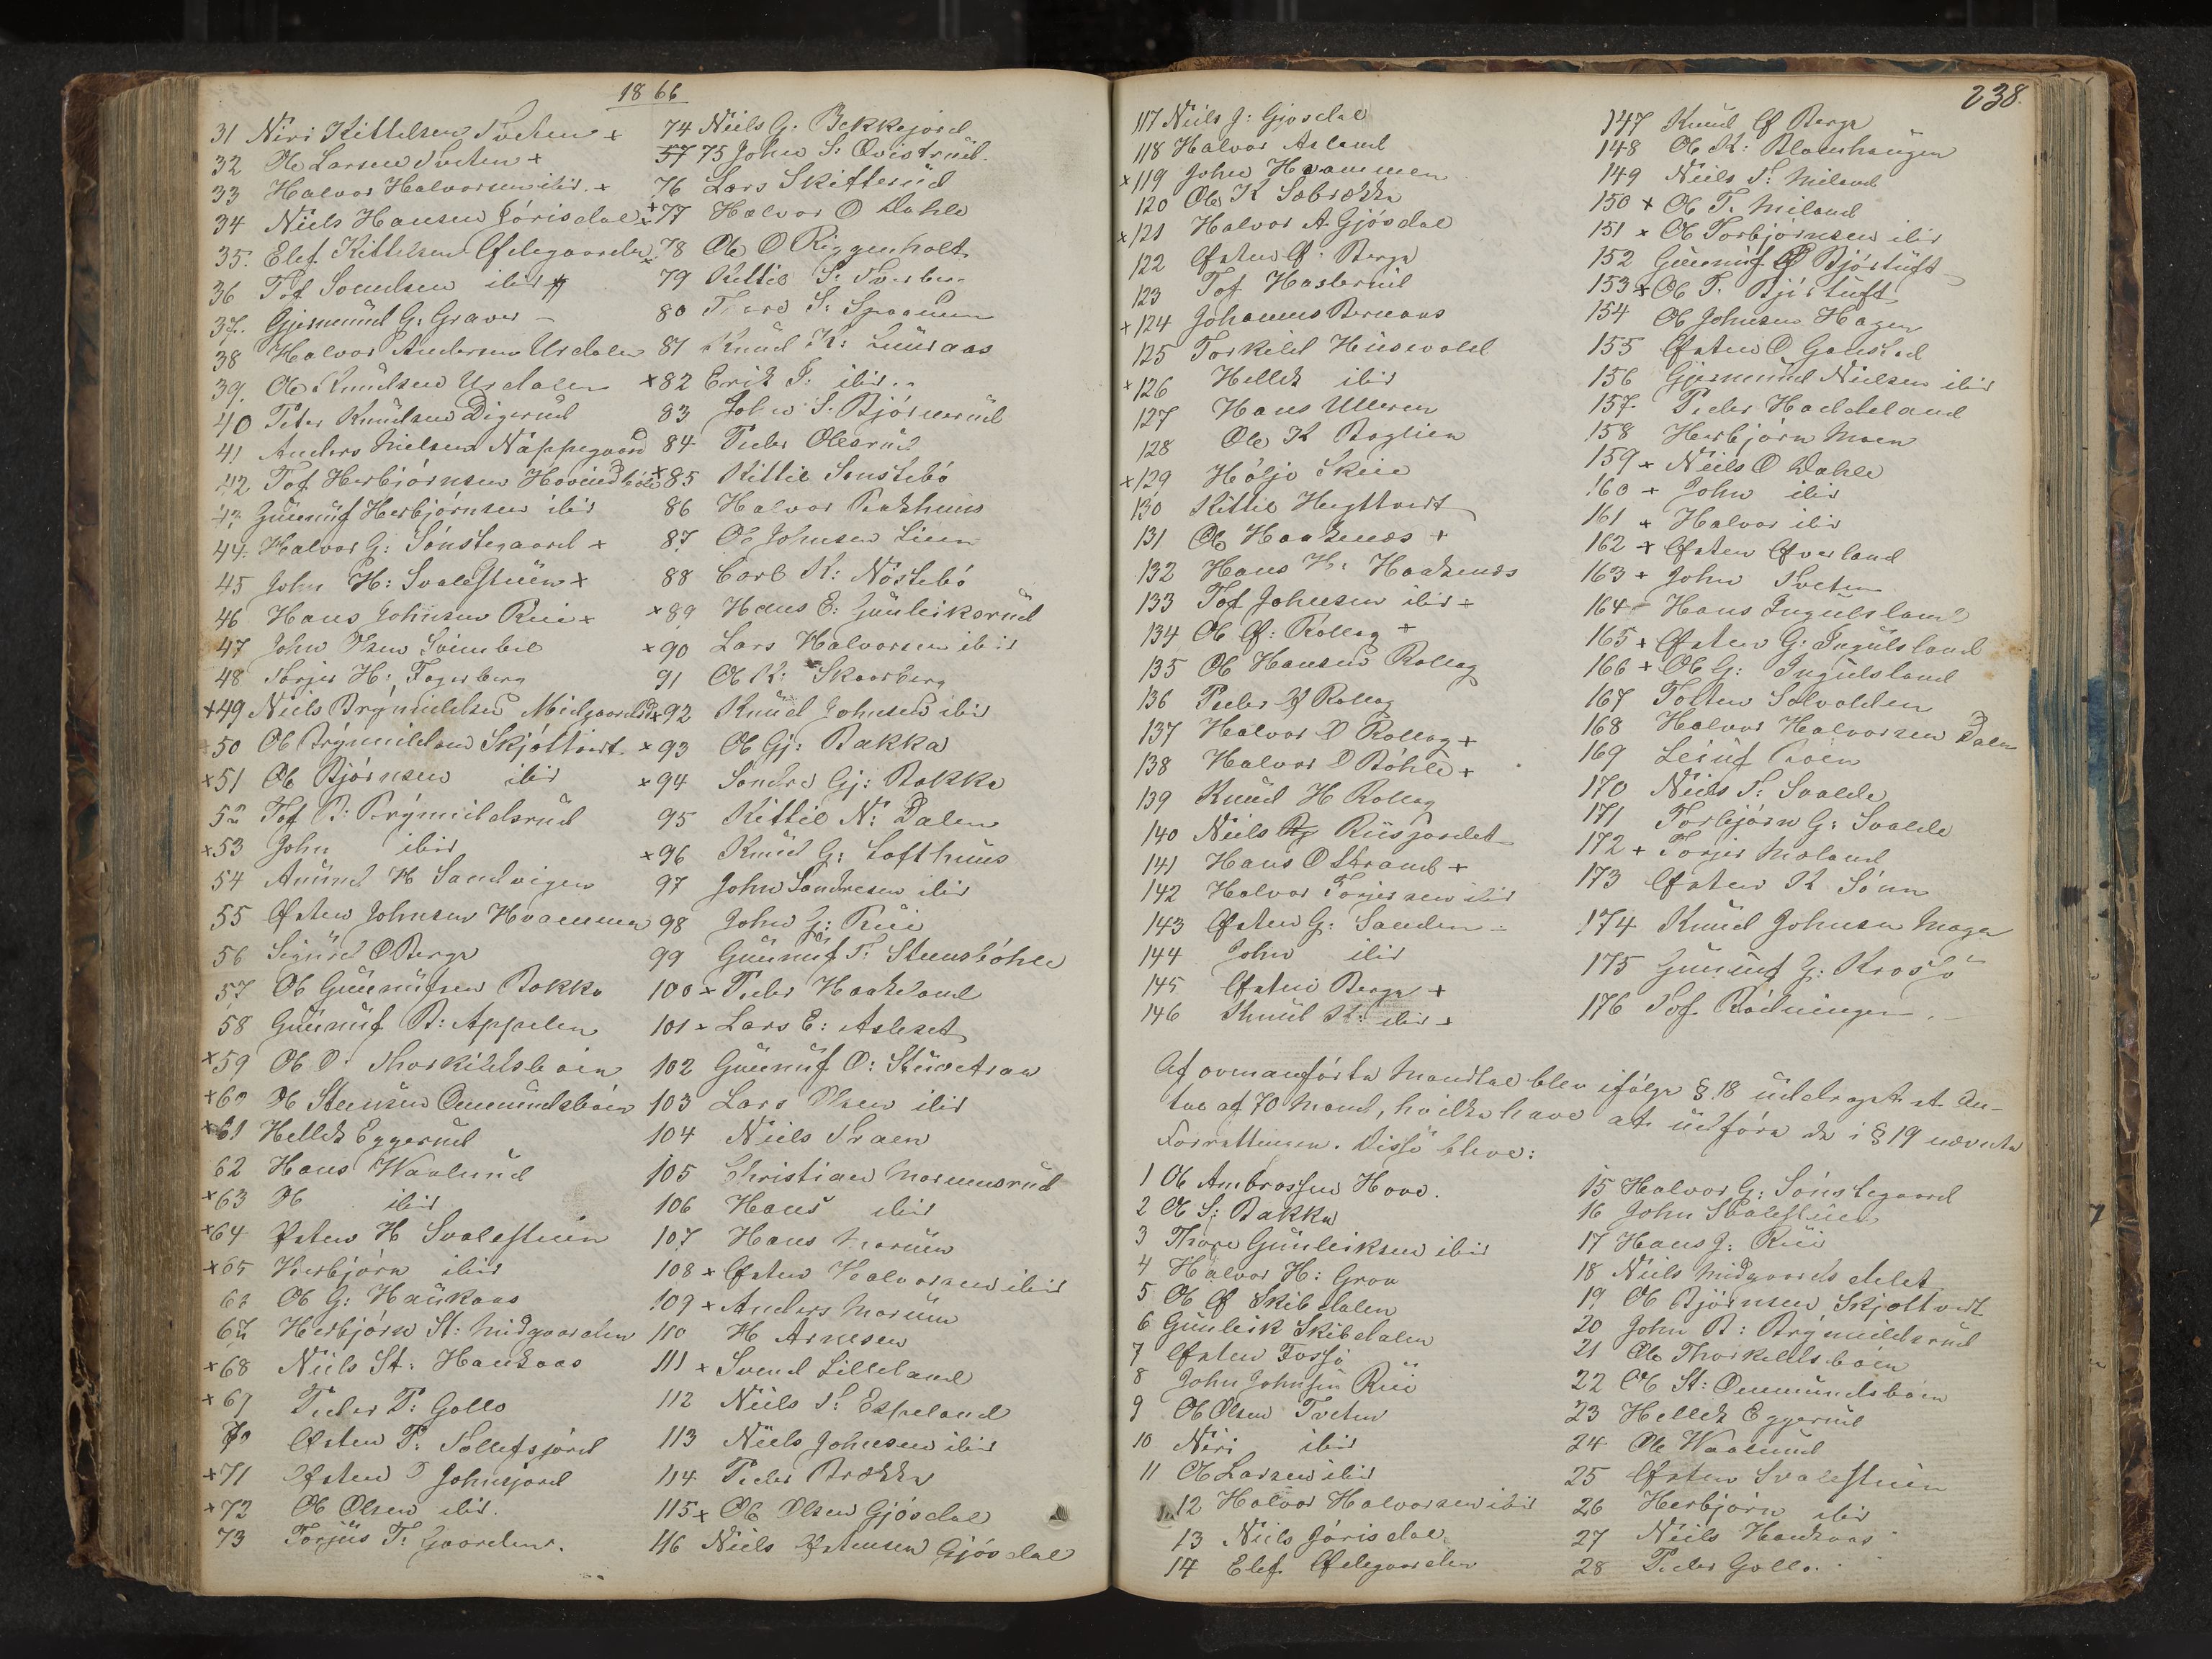 1866
31 Niri Kittelsen Tveten +
32 Ole Larsen Tveten +
33 Halvor Halvorsen ibid. +
34 Niels Hansen Jórisdal +
35. Elef Kittelsen Ødegaarden
36 Tof Sondresen ibid
37. Gjermund G: Graver
38 Halvor Andersen Urdalen
39. Ole Knudsen Urdalen
40 Peter Knudsen Digerud
41 Anders Nielsen Nappegaard
42 Tof Herbjörnsen
43 Gunnuf Herbjörnsen ibid
44. Halvor G: Sónstegaard +
45 John H: Svalestuen +
46 Hans Johnsen Rui +
47 John Olsen
48 Torjer H: Fagerberg
+49 Niels Brynnildsen Midgaards
50 Ole Brynnildsen Skjöttvedt
+51 Ole Björnsen ibid
52 Tof B: Brynnildsrud
+53 John ibid
54 Amund H Sandvigen
55 Østen Johnsen Hvammen
56 Sigurd O Berge
57 Ole Gunnufsen Bakka
58 Gunnuf B: Appelen
+59 Ole O: Thorkildsbóen
+60 Ole Stensen Ommundsbóen
+61 Hellek Eggerud
62 Hans Waalund
+63 Ole ibid
+64 Østen H Svalestuen
+65 Herbjórn ibid
66 Ole G: Haukaas
67 Herbjörn St: Midgaarden
+68 Niels St: Haukaas
+69 Peder P: Gollo
70 Østen T: Tollefsjord
+71 Østen T Johnsjord
+72 Ole Olsen ibid.
73 Torjus T: Gaarden.
74 Niels G: Bekkejord
57 75 John S: Qvistrud.
76 Lars Skitterud
+77 Halvor O Dahle
78 Ole O Riggenholt
79 Kittil S:
80 Tord S:
81 Knud K: Luuraas
+82 Erik T: ibid..
83 John S: Björnerud
84 Peder Olesrud
+85 Kittil Sónstebó
86 Halvor Bakhuus
87 Ole Johnsen Lien
88 Carl K: Nóstebó
+89 Hans E: Gunleiksrud
+90 Lars Halvorsen ibid
91 Ole K: Skaarberg
+92 Knud Johnsen ibid
+93 Ole Gj: Bakka
+94 Sondre Gj: Bakka
95 Kittil N: Dalen
+96 Knud G: Lofthuus
97 John Sondresen ibid
98 John G: Rui
99 Gunnuf T: Steensbóhle
100 + Peder Haakeland
101 + Lars E: Asleset
102 Gunnuf O:
103 Lars Olsen ibid
104 Niels Traen
105 Christian Mormonsrud
106 Hans ibid
107 Hans Moruen
108 + Østen Halvorsen ibid
109 + Anders Moruen
110 H Arnesen
111 + Svend Lilleland
112 Niels T: Espeland
113 Niels Johnsen ibid
114 Peder Brække
115 + Ole Olsen Gjósdal
116 Niels Østensen Gjósdal
238.
117 Niels J: Gjósdal
118 Halvor Asland
+119 John Hvammen
120 Ole K Sæbrække
+121 Halvor A Gjósdal
122 Østen Ø: Berge
123 Tof Haslerud
+124 Johannes Bernaas
125 Torkild Husevold
+126 Hellek ibid
127 Hans Ulleren
128 Ole K Baglien
+129 Hölje Skue
130 Kittil Hegttvedt
131 Ole Haakenæs +
132 Hans H: Haakenæs
133 Tof Johnsen ibid +
134 Ole Ø: Rollag +
135 Ole Hansen Rollag
136 Peder Rollag
137 Halvor O Rollag +
138 Halvor O Bóhle +
139 Knud H Rollag
140 Niels Riisjordet
141 Hans O Strand +
142 Halvor Torjersen ibid
143 Østen G: Sanden
144 John ibid
145 Østen Berge +
146 Knud K: ibid +
147 Knud Ø Berge
148 Ole K: Blomhaugen
149 Niels T: Miland
150 + Ole T. Miland
151 + Ole Torbjornsen ibid
152 Gunnuf Bjórtuft
153 + Ole T. Bjórtuft
154 Ole Johnsen Hagen
155 Østen O Gaustad
156 Gjermund Nielsen ibid
157. Peder Haddeland
158 Herbjórn Moen
159 + Niels O Dahle
160 + John ibid
161 + Halvor ibid
162 + Østen Øverland
163 + John Tveten
164 Hans Ingulsland
165 + Østen G: Ingulsland
166 + Ole G: Ingulsland
167 Tolten Solvolden
168 Halvor Halvorsen Dalen
169
170 Niels T: Svalde
171 Torbjórn G: Svalde
172 + Torjer Moland
173 Østen K Sónn
174 Knud Johnsen Mage
175 Gunnuf G: Krossó
176 Tof Bödningen.
Af ovenanfórte Mandtal blev ifölge § 18 uddraget et An-
tal af 70 Mand, hvilke have at udföre de i § 19 nævnte
Forretninger. Disse bleve:
1 Ole Ambrossen Hove.
2 Ole S: Bakka
3 Thore Gunleiksen ibid
4 Halvor H: Grova
5 Ole Ø Skibdalen
6 Gunleik Skibdalen
7 Østen Fossó
8 John Johnsen Rui
9 Ole Olsen Tveten
10 Niri ibid
11 Ole Larsen ibid
12 Halvor Halvorsen ibid
13 Niels Jórisdal
14 Elef Ødegaarden
15 Halvor G: Sónstegaard
16 John Svalestuen
17 Hans J: Rui
18 Niels Midgaardsdelet
19 Ole Björnsen Skjöttvedt
20 John B: Brynnildsrud
21 Ole Thorkildsbóen
22 Ole St: Ommundsbóen
23 Hellek Eggerud
24 Ole Waalund
25 Østen Svalestuen
26 Herbjórn ibid
27 Niels Haukaas
28 Peder Gollo.